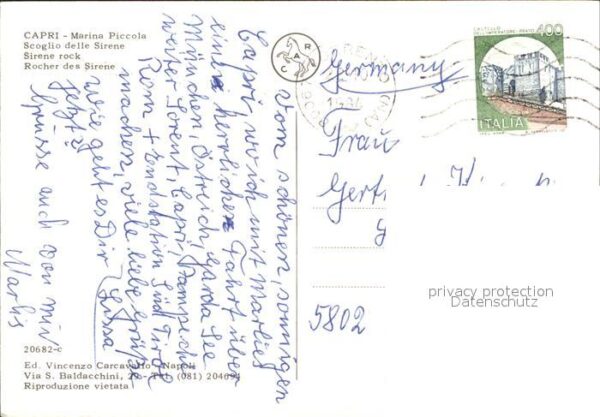 CAPRI - Marina Piccola
Scoglio delle Sirene
Sirene rock
Rocher des Sirene
Vom schönen, sonnigen
Capri, wo ich mit Marlies
einer herrlichen Fahrt über
München, Östreich, Garda See
weiter Sorent, Capri,
Rom + Endstation Süd Tirol
machen, viele liebe Grüße
Wie geht es Dir Lissa
jetzt?
Grüsse auch von mir
Marlis
20682-c
Ed. Vincenzo Carcavallo - Napoli
Via S. Baldacchini, 29 - Tel. (081) 204691
Riproduzione vietata
RAC
Germany
Frau
5802
CASTELLO DELL'IMPERATORE - PRATO
400
ITALIA
privacy protection
Datenschutz